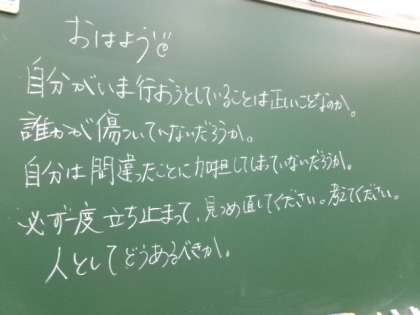 おはよう
自分がいま行おうとしていることは正しいことなのか。
誰かが傷ついていないだろうか。
自分は間違ったことに加担してしまっていないだろうか。
必ず一度立ち止まって、見つめ直してください。考えてください。
人としてどうあるべきか。